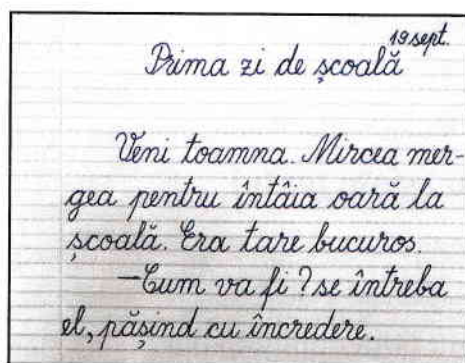 19 sept.
Prima zi de școală
Veni toamna. Mircea mer-
gea pentru întâia oară la
școală. Era tare bucuros.
—Cum va fi? se întreba
el, pășind cu încredere.